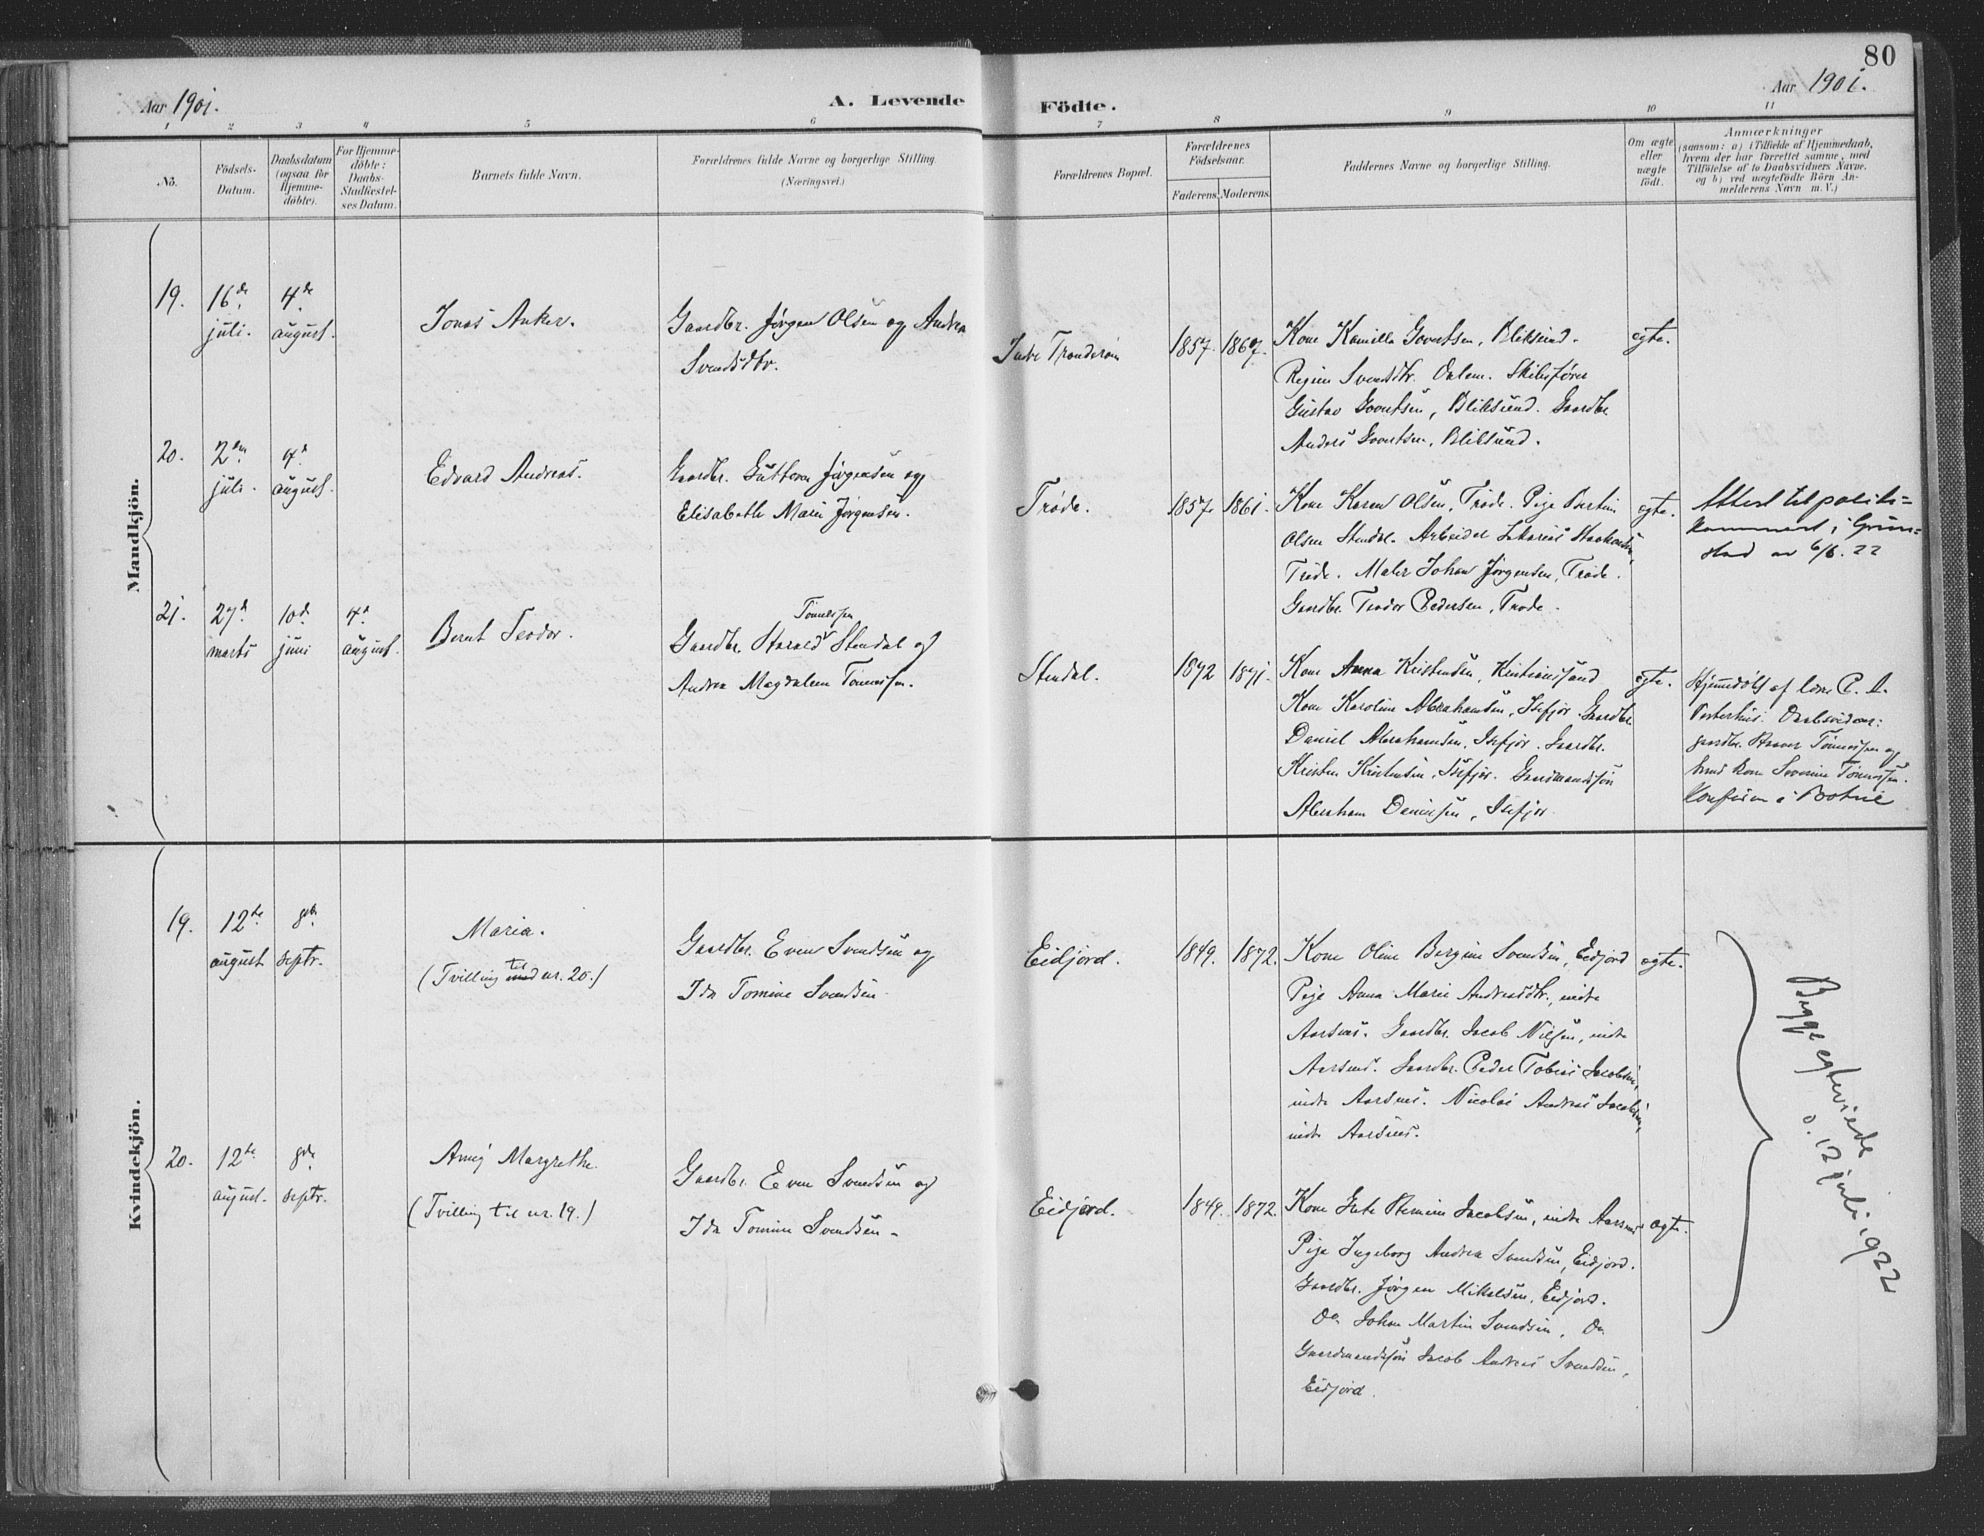 80
Aar 1901.
A. Levende Födte.
Aar 1901.
1 2 3 4 5 6 7 8 9 10 11
No.
Födsels-
Datum.
Daabsdatum
(ogsaa for
Hjemme-
døbte).
For Hjemme-
døbte:
Daabs-
Stadfæstel-
ses Datum.
Barnets fulde Navn.
Forældrenes fulde Navne og borgerlige Stilling.
(Næringsvei.)
Forældrenes Bopæl.
Forældrenes
Födselsaar.
Faderens. Moderens.
Faddernes Navne og borgerlige Stilling.
Om ægte
eller
uægte
födt.
Anmærkninger
(saasom: a) i Tilfælde af Hjemmedaab,
hvem der har forrettet samme, med
Tilföielse af to Daabsvidners Navne,
og b) ved uægtefödte Börn An-
melderens Navn m. V.)
Mandkjön.
19.
16de
juli.
4de
august.
Jonas Anker.
Gaardbr. Jørgen Olsen og Andrea
Svendsdtr.
1857. 1867.
Kone Kamilla Govertsen, Bliksund.
Regine Svendsdtr. Skibsfører
Gustav Govertsen, Bliksund. Gaardbr.
Anders Govertsen, Bliksund.
egte.
20.
2den
juli.
4d
august.
Edvard Andreas.
Gaardbr. Guttorm Jørgensen og
Elisabeth Marie Jørgensen.
Trøde.
1857. 1861.
Kone Karen Olsen, Trøde. Pige
Olsen Stendal. Arbeider
Trøde. Maler Johan Jørgensen, Trøde.
Gaardbr. Teodor Pedersen, Trøde.
egte.
Attest til politi-
kammeret i Grim-
stad av 6/6. 22
21.
27d
marts
10d
juni
4d
august.
Bernt Teodor.
Tønnessen
Gaardbr. Harald Stendal og
Andrea Magdalene Tønnessen.
Stendal.
1872 1871.
Kone Anna Kristensen, Kristianssand
Kone Karoline Abrahamsen, Isefjær. Gaardbr.
Daniel Abrahamsen, Isefjær. Gaardbr.
Kristen Kristensen, Isefjær. Gaardmandssøn
Abraham Danielsen, Isefjær.
egte.
Hjemmedøbt af
Daabsvidner:
gaardbr. Tønnessen og
kone Severine Tønnessen.
Kvindekjön.
19.
12te
august
8de
septr.
Maria.
(Tvilling til med nr. 20.)
Gaardbr. Even Svendsen og
Ida Tomine Svendsen
Eidjord.
1849. 1872.
Kone Oline Bergine Svendsen, Eidjord
Pige Anna Marie Andreasdtr., indre
Aarsnes. Gaardbr. Jacob Nilsen, indre
Aarsnes. Gaardbr. Peder Tobias Jacobsen,
indre Aarsnes. Nicolai Andreas Jacobsen,
indre Aarsnes.
egte.
Begge egteviede
d. 12 juli 1922
20.
12te
august.
8de
septr.
Margrethe
(Tvilling til nr. 19.)
Gaardbr. Even Svendsen og
Ida Tomine Svendsen.
Eidjord.
1849. 1872.
Kone Jacobsen, indre Aarsnes
Pige Ingeborg Andrea Svendsen, Eidjord.
Gaardbr. Jørgen Mikalsen, Eidjord.
Do. Johan Martin Svendsen, Do.
Gaardmandssøn Jacob Andreas Svendsen,
Eidjord.
egte.